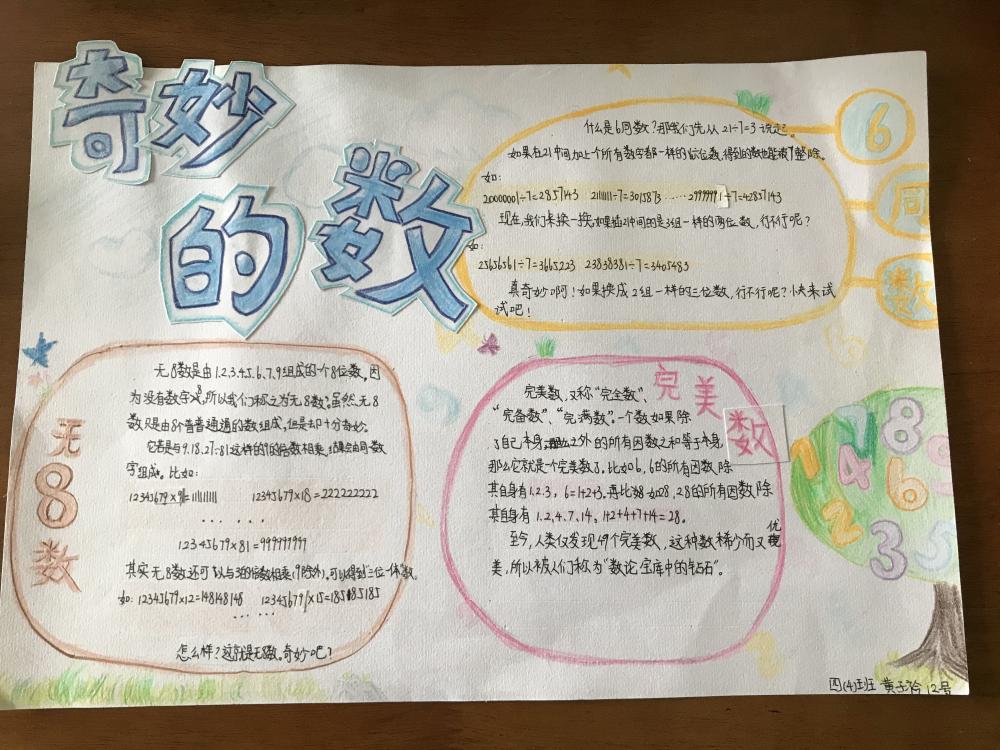 奇妙
的数
什么是6同数?那我们先从21÷7=3说起。
如果在21中间加上个所有数字都一样的6位数,得到的数也能被7整除。
如:
20000001÷7=2857143 21111111÷7=3015873 ……29999991÷7=42857143
现在,我们来换一换,如果插21中间的是3组一样的两位数,行不行呢?
如:
25656561÷7=3665223 23838381÷7=3405483
真奇妙啊!如果换成2组一样的三位数,行不行呢?快来试
试吧!
6
同
数
无
8
数
无8数是由1.2.3.4.5.6.7.9组成的一个8位数。因
为没有数字8,所以我们称之为无8数。虽然,无8
数只是由8个普普通通的数组成,但是却十分奇妙。
它若是与9.18.27…81这样的9的倍数相乘,结果会由同一数
字组成。比如:
12345679×9=111111111 12345679×18=222222222
......
12345679×81=999999999
其实无8数还可以与3的倍数相乘(9除外),可以得到“三位一体”数。
如:12345679×12=148148148 12345679×15=185185185
......
怎么样?这就是无8数。奇妙吧?
完美
数
完美数,又称“完全数”、
“完备数”、“完满数”。一个数如果除
了自己本身之外的所有因数之和等于本身,
那么它就是一个完美数了。比如6,6的所有因数除
其自身有1.2.3,6=1+2+3。再比如28,28的所有因数除
其自身有1.2.4.7.14。1+2+4+7+14=28。
至今,人类仅发现49个完美数,这种数稀少而又优
美,所以被人们称为“数论宝库中的钻石”。
1
7
8
4
9
6
2
3
5
四(4)班 黄子 12号